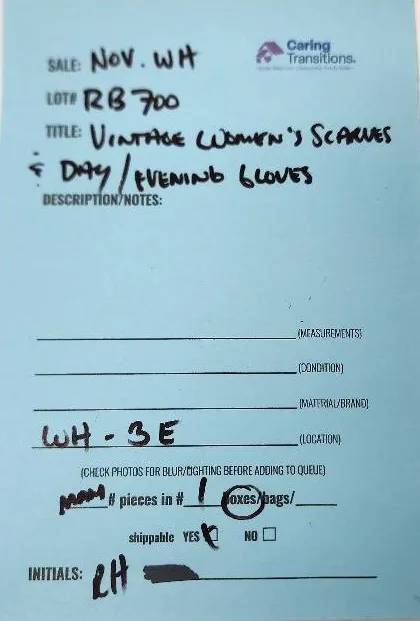 Caring
Transitions.
SALE: NOV. WH
LOT# RB 700
TITLE: VINTAGE WOMEN'S SCARVES
& DAY/EVENING GLOVES
DESCRIPTION/NOTES:
(MEASUREMENTS)
(CONDITION)
(MATERIAL/BRAND)
WH-3E (LOCATION)
(CHECK PHOTOS FOR BLUR/LIGHTING BEFORE ADDING TO QUEUE)
MANY # pieces in # 1 boxes/bags/
shippable YES NO
INITIALS: RH